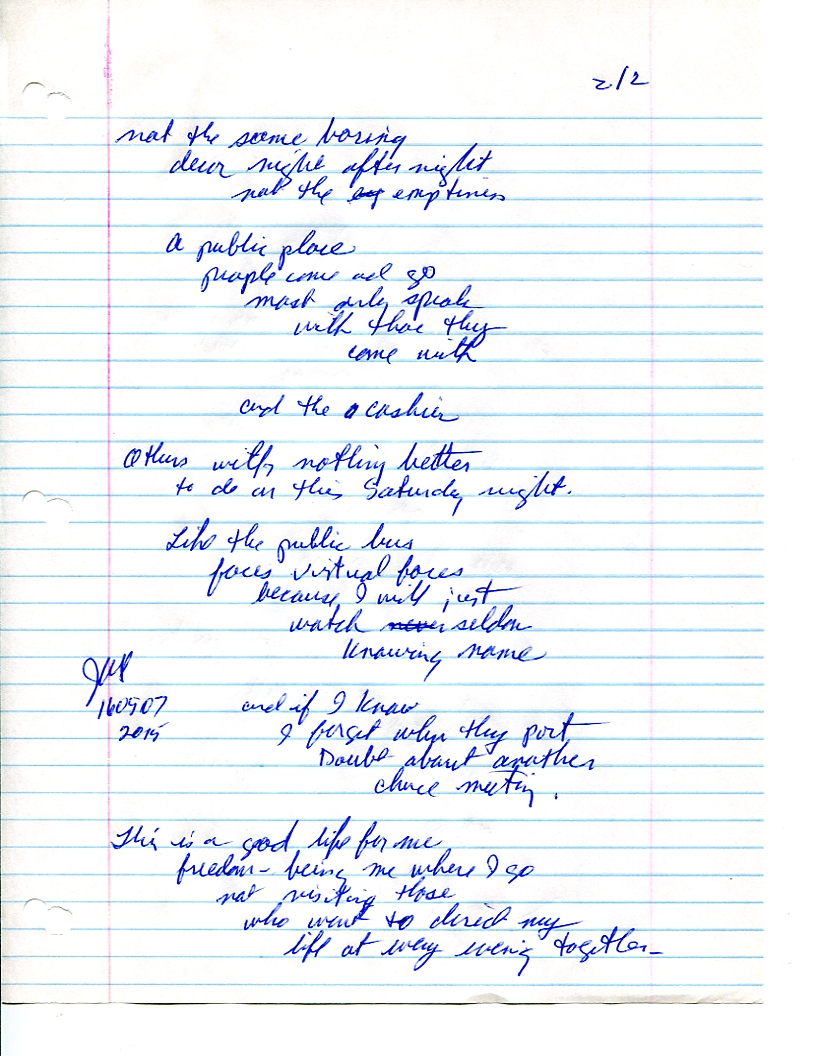 2/2
not the same boring
decor night after night
not the emptiness
A public place
people come and go
most only speak
with those they
come with
and the cashier
Others with nothing better
to do on this Saturday night.
Like the public bus
faces virtual faces
because I will just
watch never seldom
knowing name
160907
2015
and if I know
I forget when they part
Doubt about another
chance meeting.
This is a good life for me
freedom - being me where I go
not visiting those
who want to direct my
life at every evening together -